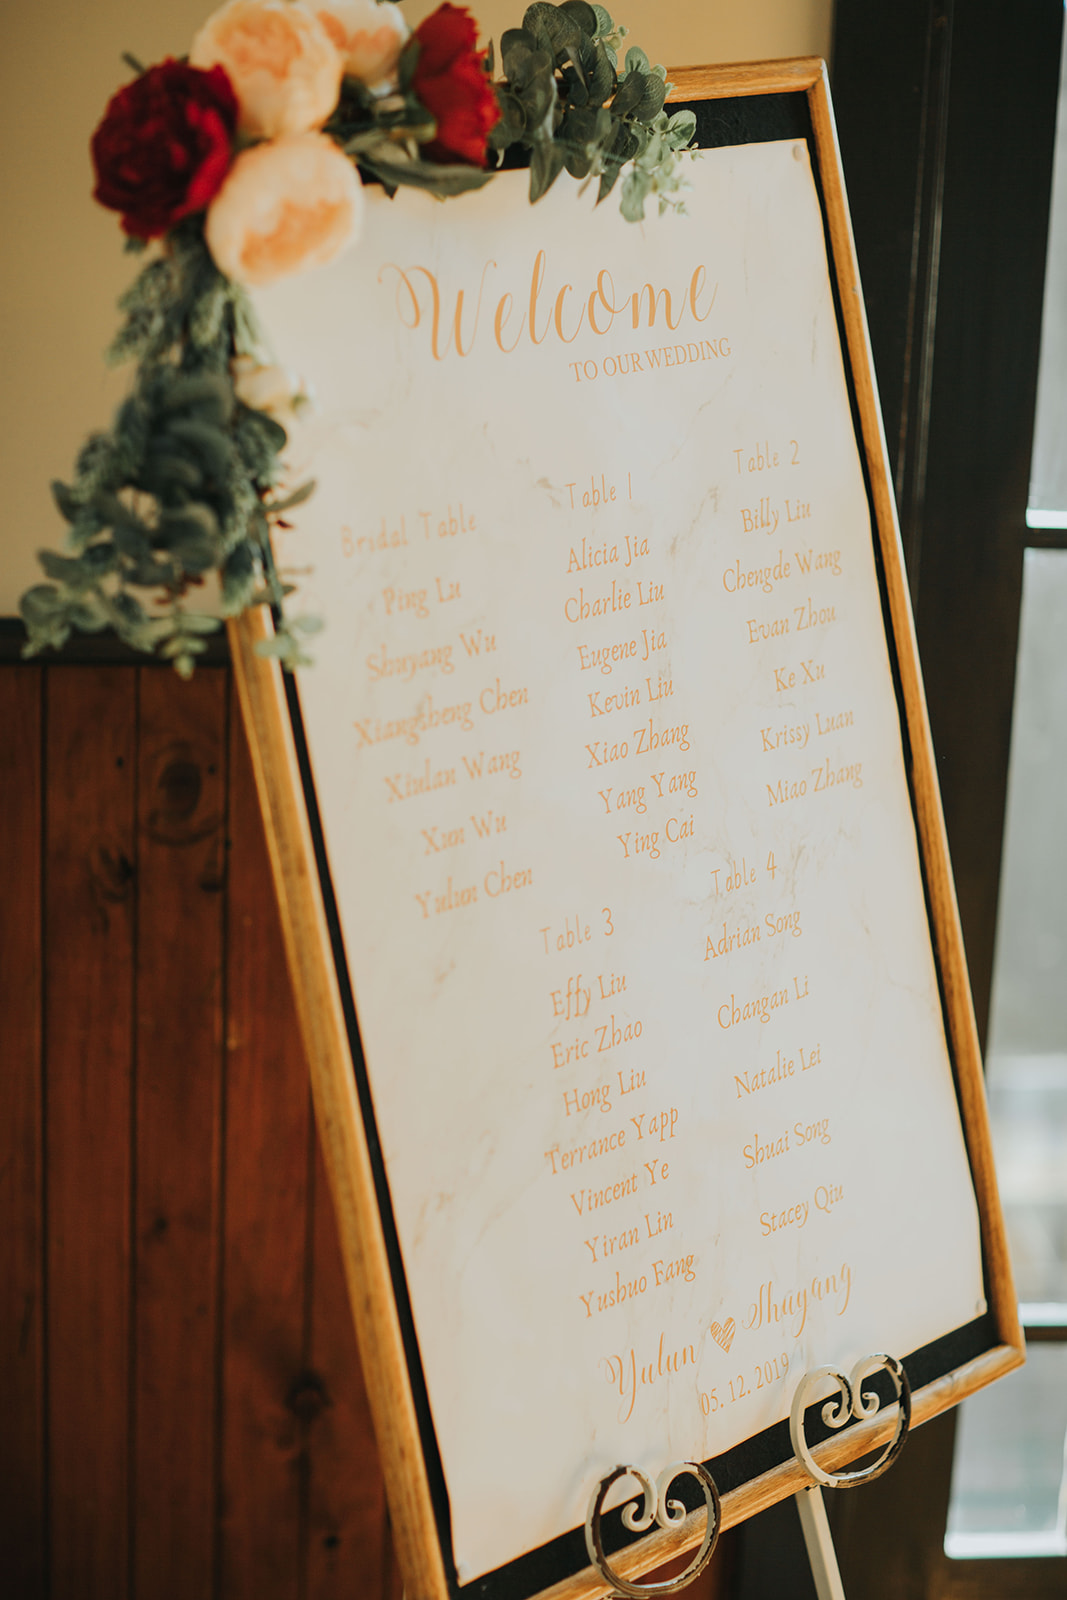 Welcome
TO OUR WEDDING
Bridal Table
Ping Lu
Shuyang Wu
Xiangsheng Chen
Xiulan Wang
Xun Wu
Yulun Chen
Table 1
Alicia Jia
Charlie Liu
Eugene Jia
Kevin Liu
Xiao Zhang
Yang Yang
Ying Cai
Table 2
Billy Liu
Chengde Wang
Evan Zhou
Ke Xu
Krissy Luan
Miao Zhang
Table 3
Effy Liu
Eric Zhao
Hong Liu
Terrance Yapp
Vincent Ye
Yiran Lin
Yushuo Fang
Table 4
Adrian Song
Changan Li
Natalie Lei
Shuai Song
Stacey Qiu
Yulun Shuyang
05. 12. 2019